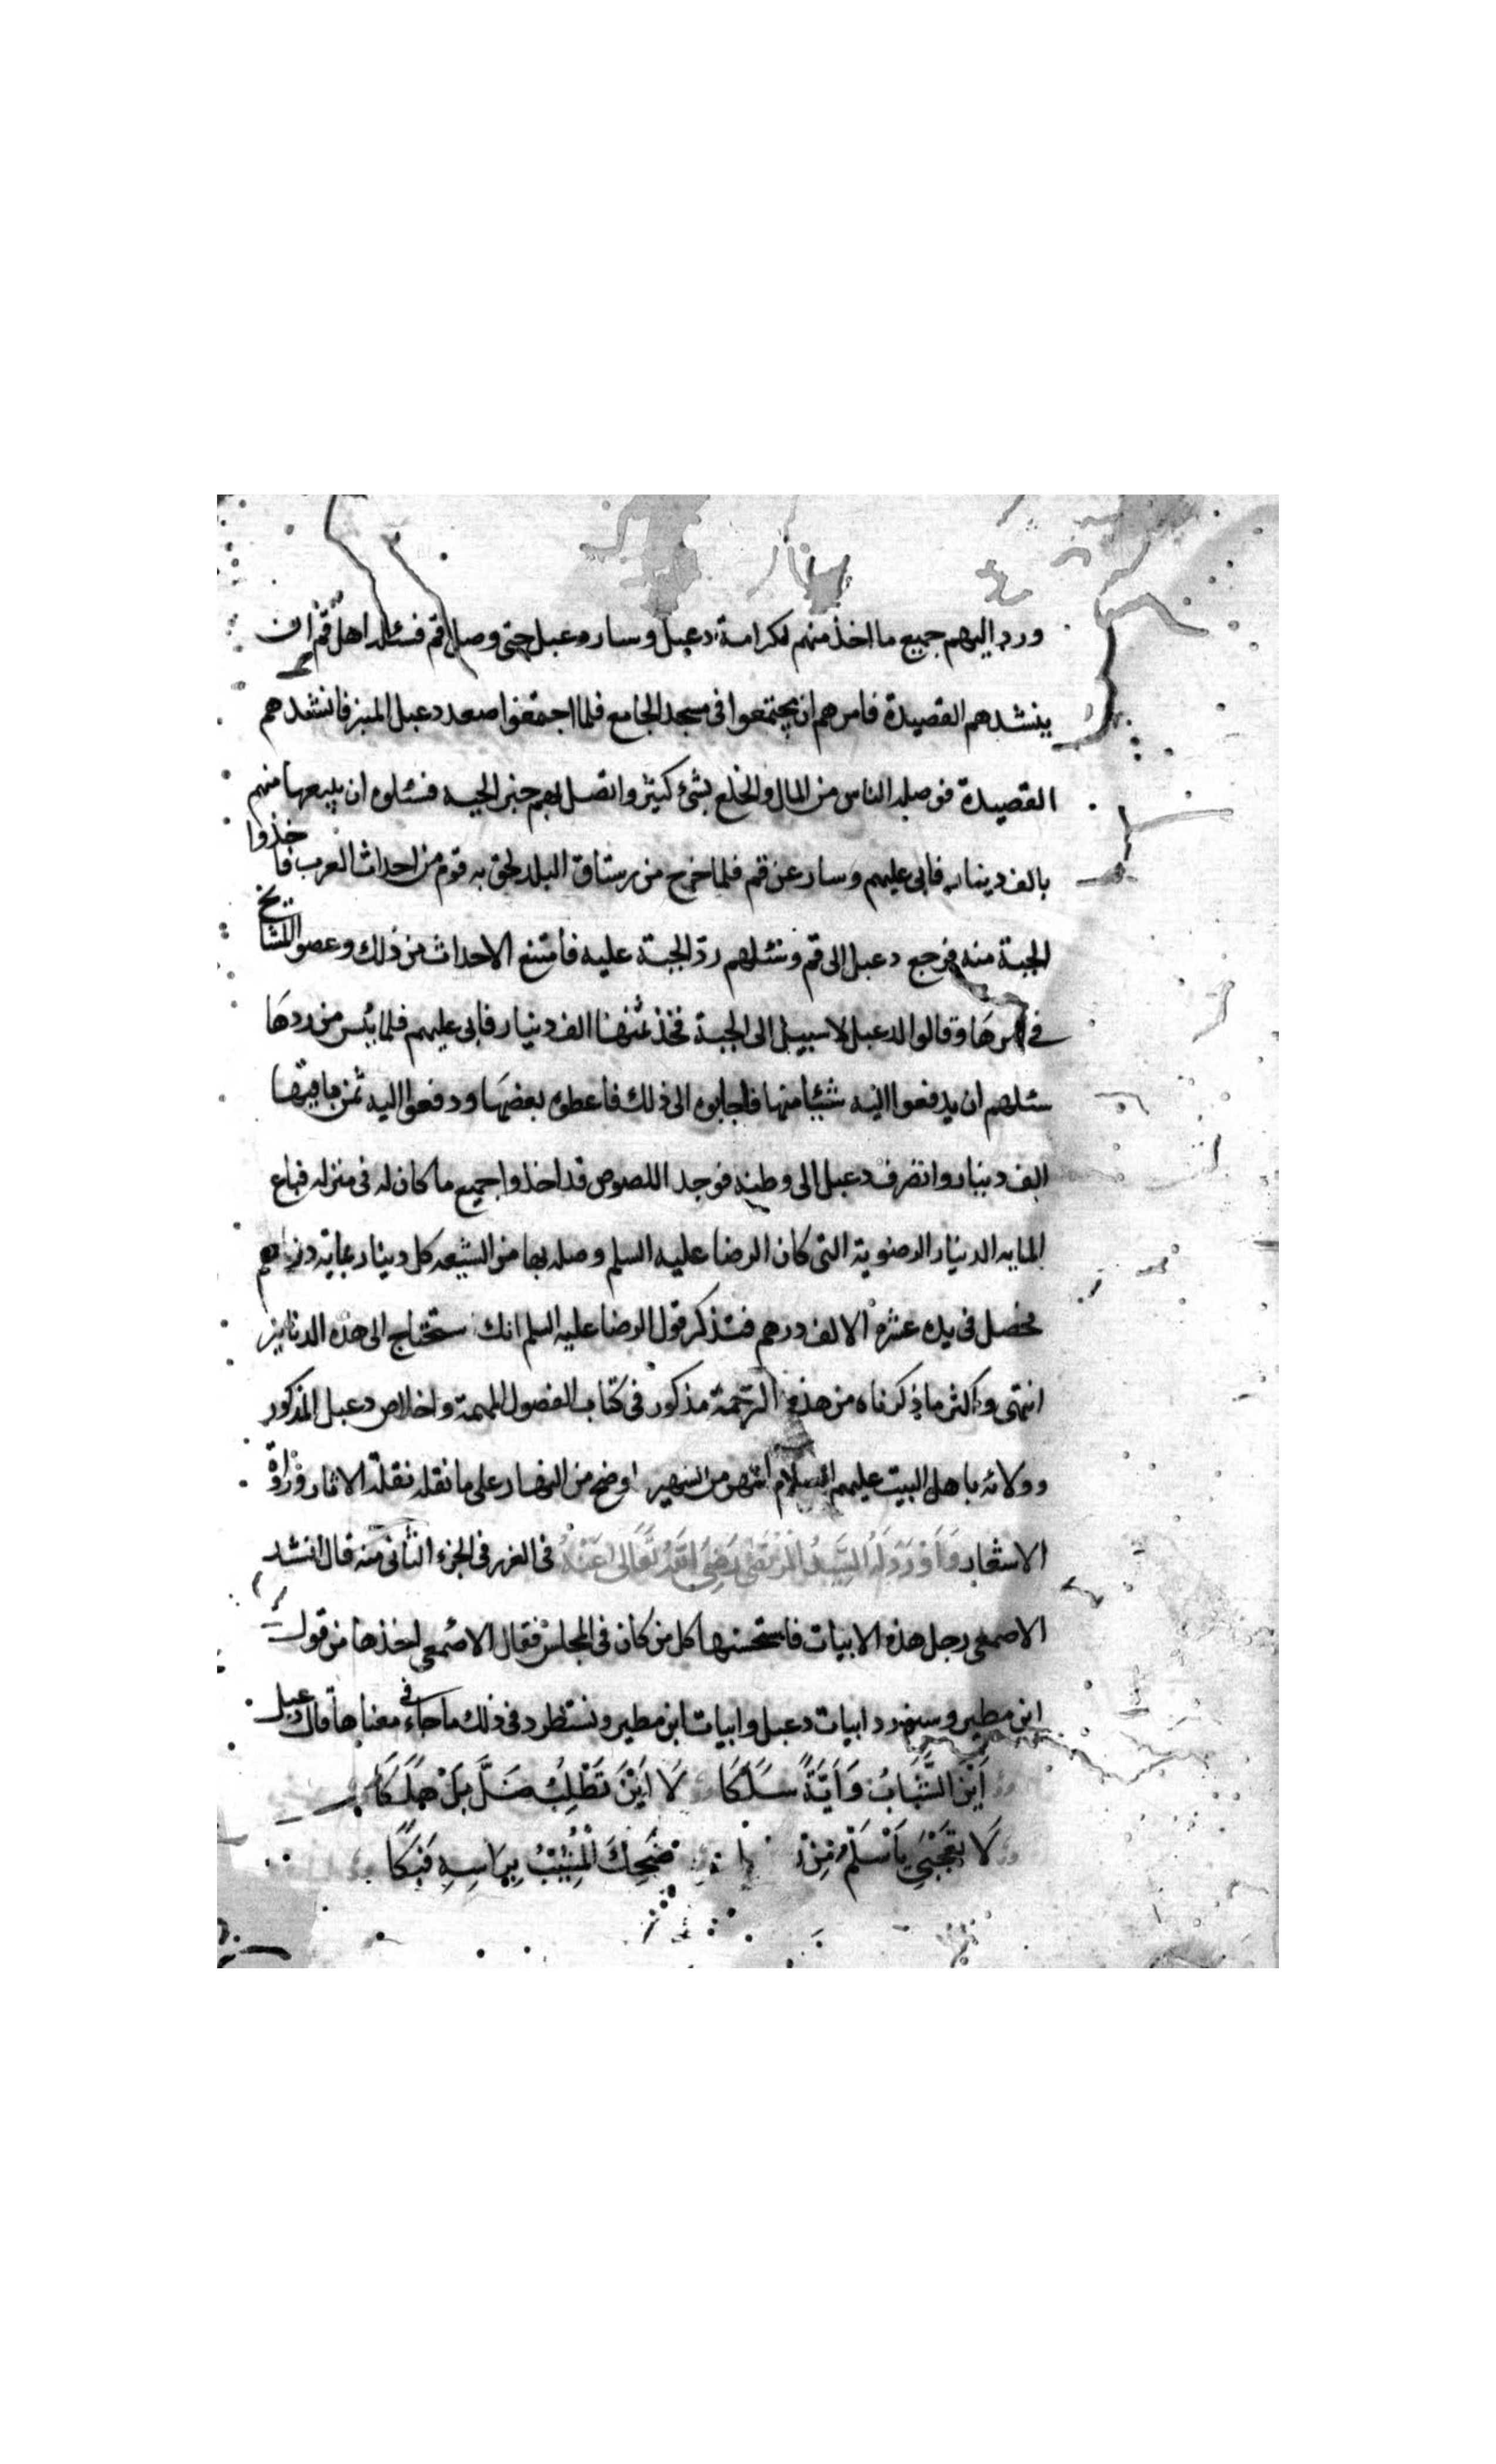 ورد اليهم جميع ما اخذ منهم لكرامة دعبل وسار دعبل حتى وصل قم فسئله اهل قم ان
ينشدهم القصيدة فامرهم ان يجتمعوا فى مسجد الجامع فلما اجتمعوا صعد دعبل المنبر فانشدهم
القصيدة فوصله الناس من المال والخلع بشئ كثير واتصل بهم خبر الجبه فسئلوه ان يبيعها منهم
بالف دينار فابى عليهم وسار عن قم فلما خرج من رستاق البلد لحق به قوم من احداث العرب فاخذوا
الجبة منه فرجع دعبل الى قم وسئلهم ردّ الجبة عليه فامتنع الاحداث من ذلك وعصوا المشايخ
فى امرها وقالوا لدعبل لا سبيل الى الجبة فخذ ثمنها الف دينار فابى عليهم فلما يئس من ردها
سئلهم ان يدفعوا اليه شيئا منها فاجابوه الى ذلك فاعطوه بعضها ودفعوا اليه ثمن باقيها
الف دينار وانصرف دعبل الى وطنه فوجد اللصوص قد اخذوا جميع ما كان له فى منزله فباع
المايه الدينار الرضوية التى كان الرضا عليه السلم وصله بها من الشيعه كل دينار بماية درهم
فحصل فى يده عشرة الالف درهم فتذكر قول الرضا عليه السلم انك ستحتاج الى هذه الدنانير
انتهى واكثر ما ذكرناه من هذه الترجمة مذكور فى كتاب الفصول المهمة واخلاص دعبل المذكور
وولائه باهل البيت عليهم السلام اشهر من الشهير اوضح من النهار على ما نقله نقلة الاثار ورواة
الاشعار وَاَوْرَدَ لَهُ السَّيِّدُ المُرْتَضى رَضِىَ اللهُ تَعَالى عَنْهُ فى الغرر فى الجزء الثانى منه قال انشد
الاصمعى رجل هذه الابيات فاستحسنها كل من كان فى المجلس فقال الاصمعى اخذها من قول
ابن مطير وسنورد ابيات دعبل وابيات ابن مطير ونستظرد فى ذلك ما جاء فى معناها قال دعبل
اَيْنَ الشَّبَابُ وَاَيَّةً سَلَكَا لَا اَيْنَ تَطْلِبُ ضَلَّ بَلْ هَلَكَا
لَا تَعْجَبِى يَا سَلْمُ مِنْ ضَحِكَ الْمَشِيْبُ بِرَاسِهِ فَبَكَا